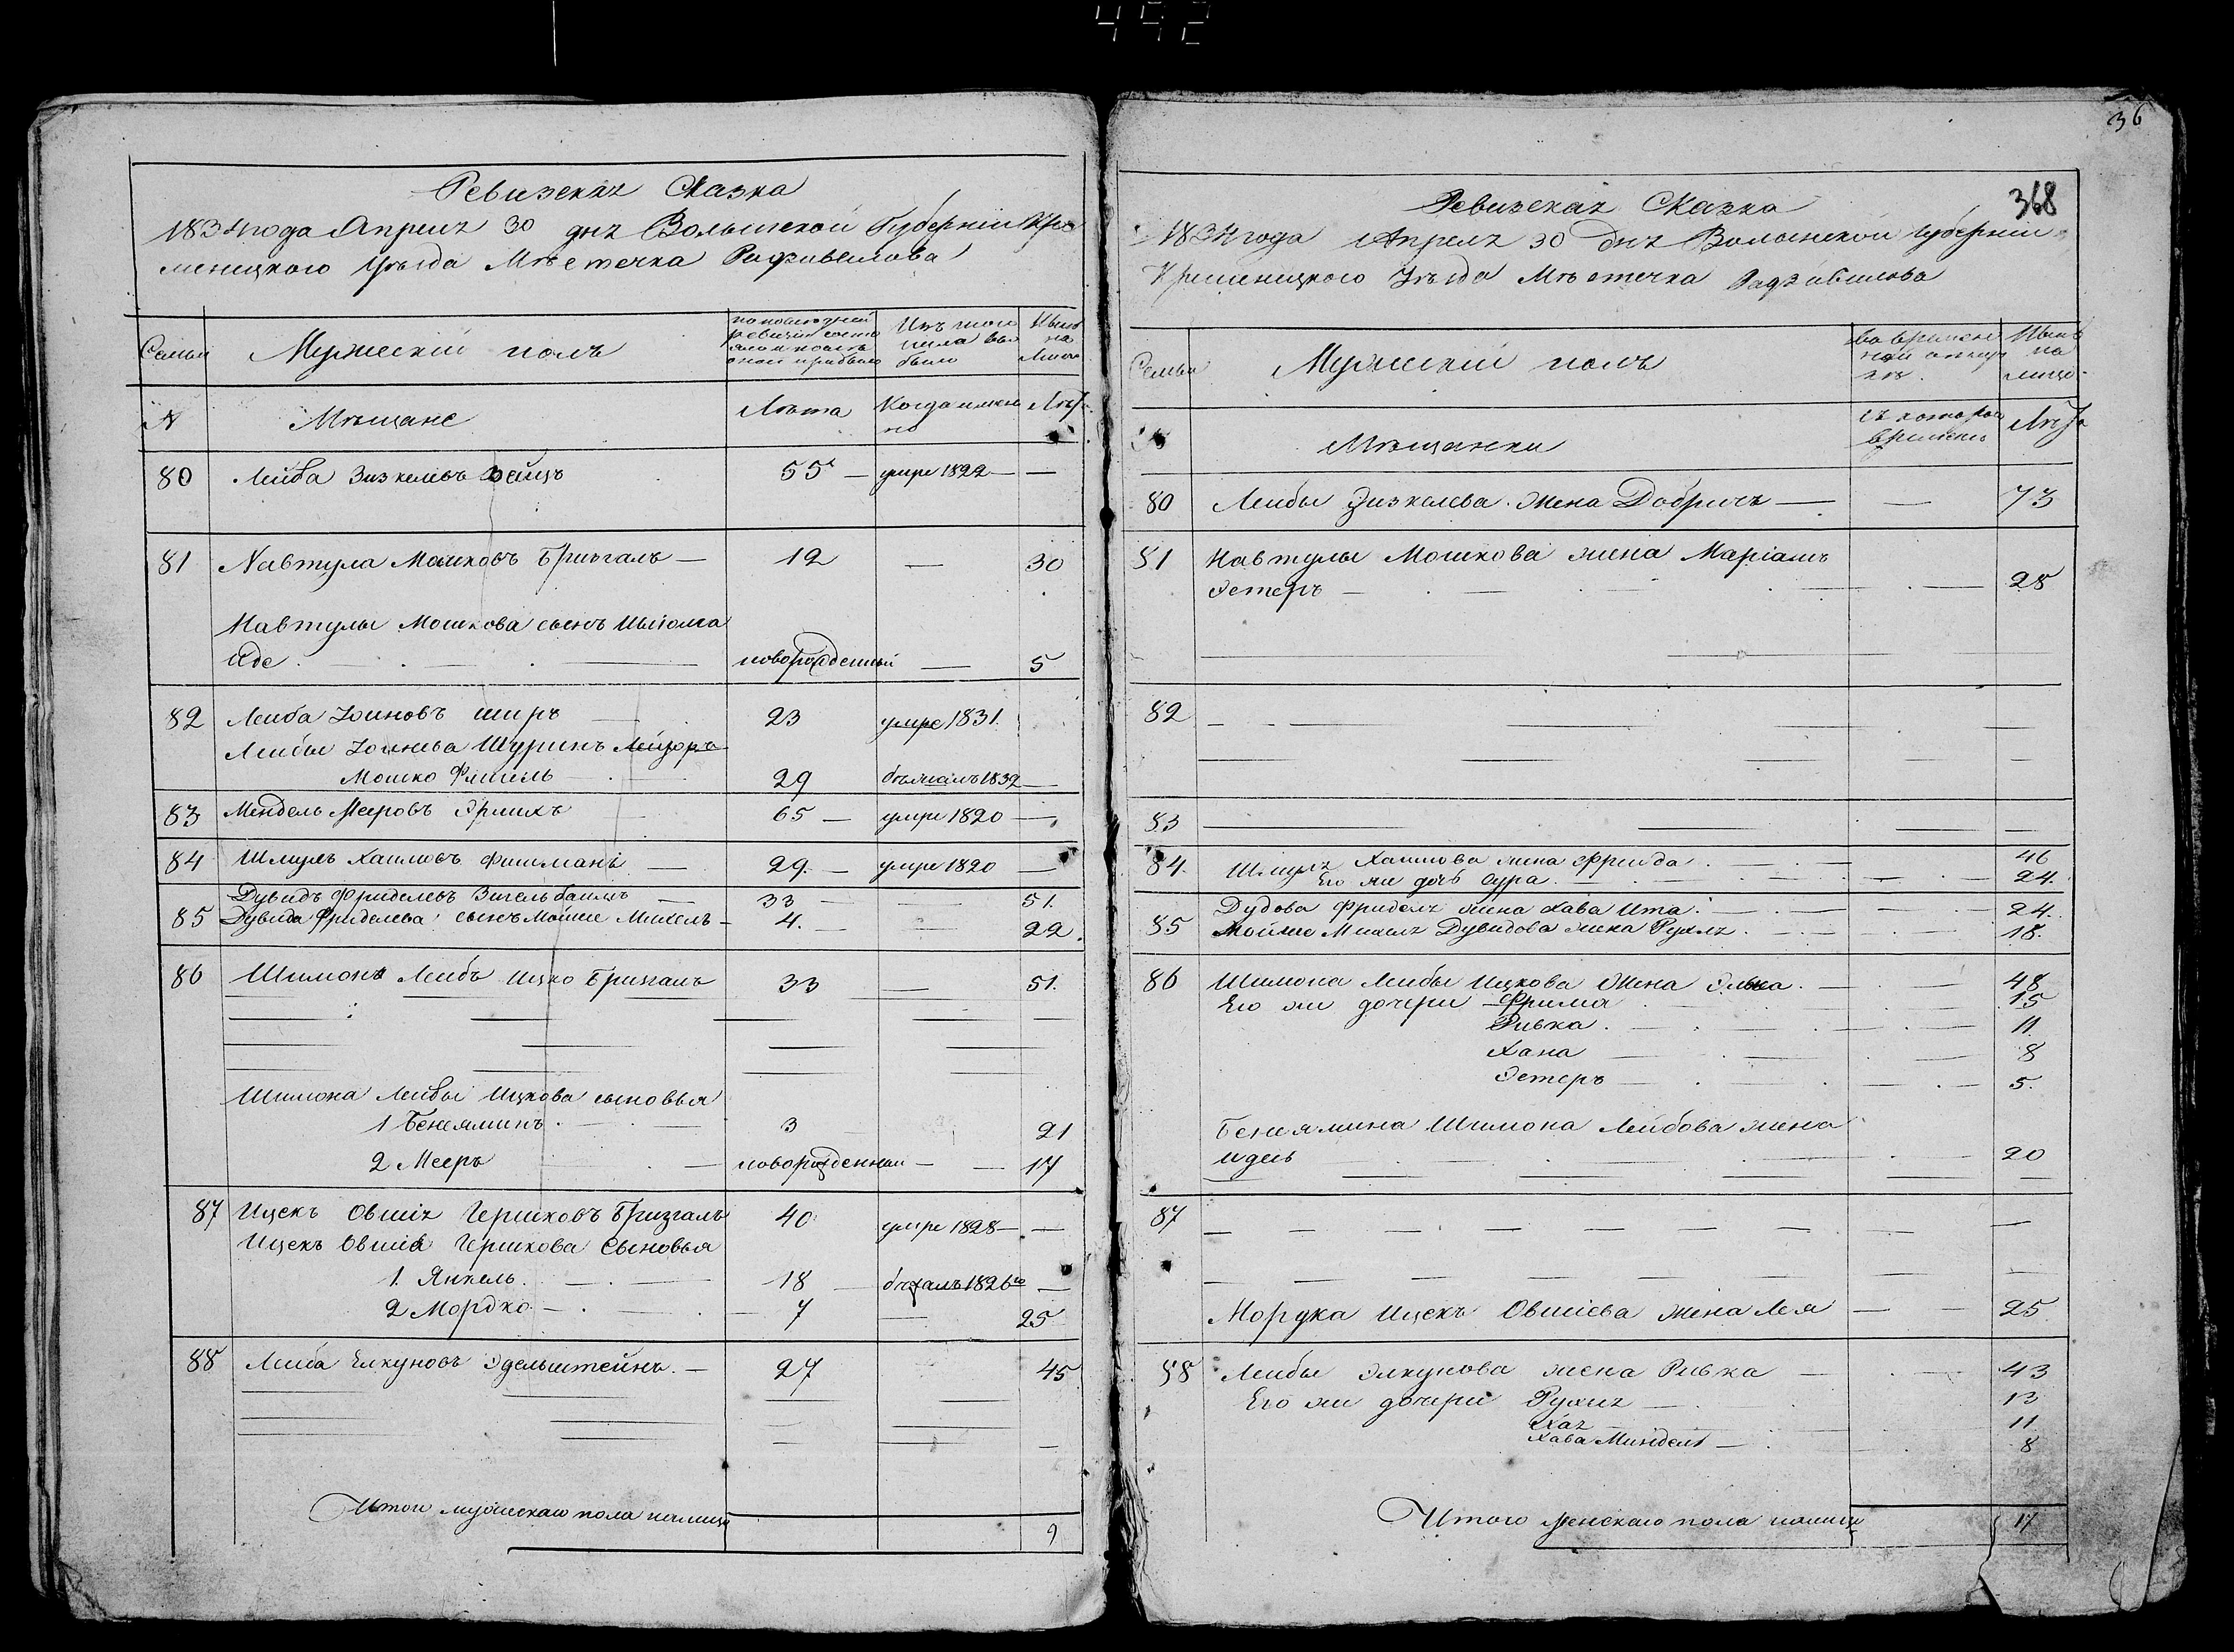 492
Ревизская Сказка
1834 года Апреля 30 дня Волынской Губернии Кре
менецкого Уѣзда Мѣстечка Радзивилова
Семьи
Мужескій полъ
по последней
ревизіи состо
яло и послѣ
оной прибыло
Изъ того
числа вы
было
Нынѣ
на
лицо
№
Мѣщане
Лѣта
Когда имен
но
Лѣта
80 Лейба Зизкелевъ Зейцъ 55 — умре 1822 — —
81 Навтула Мошковъ Бризгалъ — 12 — 30
Навтулы Мошкова сынъ Шліома
Иде новорожденный — 5
82 Лейба Хоиновъ ширъ 23 умре 1831
Лейбы Хоинова Шуринъ Лейзоръ
Мошко Фишель 29 бѣжалъ 1832 —
83 Мендель Мееровъ Эрлихъ 65 — умре 1820 —
84 Шмуль Хаимовъ Фишманъ — 29 — умре 1820 —
Дувидъ Фриделевъ Зигельбаимъ — 33 — 51.
85 Дувида Фриделева сынъ Мойше Михель — 4. — 22.
86 Шимонъ Лейбъ Ицко Бризгалъ 33 — 51.
Шимона Лейбы Ицкова сыновья
1 Бенеяминъ 3 21
2 Мееръ — новорожденной — — 17
87 Ицекъ Овшія Гершковъ Бризгалъ 40 умре 1828 — —
Ицекъ Овшія Гершкова Сыновья
1. Янкель. 18 бѣжалъ 1826го —
2 Мордко — 7 — 25
88 Лейба Елкуновъ Эдельштейнъ. — 27 45
Итого мужескаго пола налицо
9
36
368
Ревизская Сказка
1834 года Апреля 30 дня Волынской Губерніи
Кременецкого Уѣзда Мѣстечка Радзивилова
Семьи
Мужескій полъ
во времен
ной отлуч
кѣ.
Нынѣ
на
лицо
Мѣщанки
съ котораго
времени
Лѣта
80 Лейбы Зизкелева Жена Добричъ — — 73
81 Навтулы Мошкова жена Маріамъ
Эстеръ — 28
82
83
84. Шмуля Хаимова жена Фрейда 46
Его же дочь Сура. 24.
Дудова Фриделя жена Хава Ита 24.
85 Мойше Михеля Дувидова жена Рухля 18.
86 Шимона Лейбы Ицкова Жена Элька. 48
Его же дочери Фрима 15
Ривка. 11
Хана 8
Эстеръ 5.
Бенеямина Шимона Лейбова жена
Идесь 20
87
Мордка Ицекъ Овшіева жена Лея — — 25
88 Лейбы Элкунова жена Ривка 43
Его же дочери Рухля 13
Хая 11
Хава Миндель — 8
Итого женскаго пола налицо
17